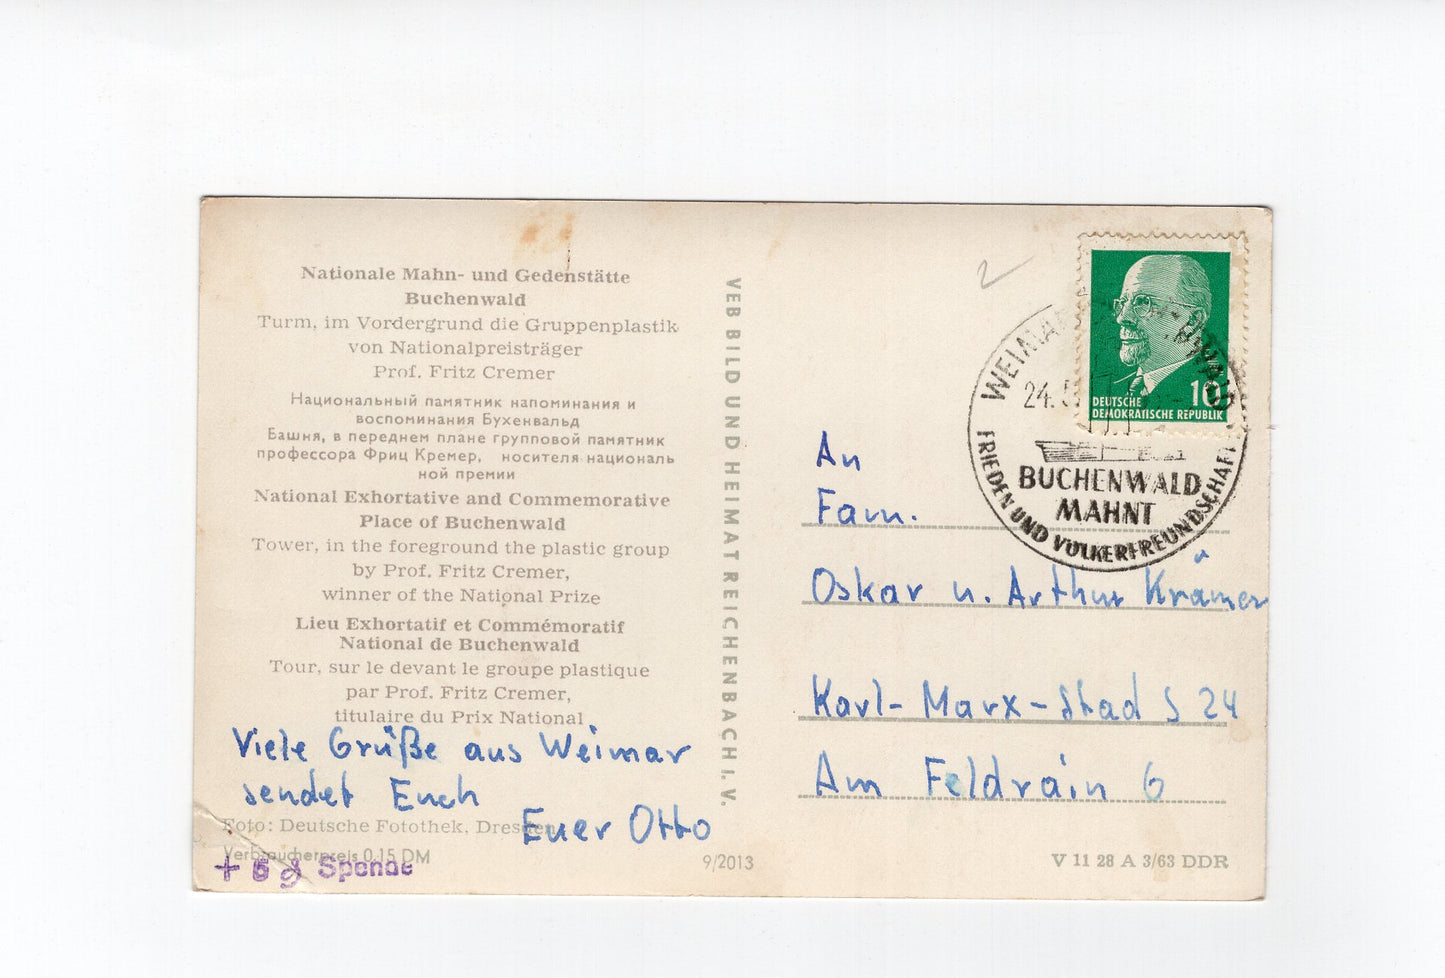 Nationale Mahn- und Gedenstätte
Buchenwald
Turm, im Vordergrund die Gruppenplastik
von Nationalpreisträger
Prof. Fritz Cremer
Национальный памятник напоминания и
воспоминания Бухенвальд
Башня, в переднем плане групповой памятник
профессора Фриц Кремер, носителя националь
ной премии
National Exhortative and Commemorative
Place of Buchenwald
Tower, in the foreground the plastic group
by Prof. Fritz Cremer,
winner of the National Prize
Lieu Exhortatif et Commémoratif
National de Buchenwald
Tour, sur le devant le groupe plastique
par Prof. Fritz Cremer,
titulaire du Prix National
Viele Grüße aus Weimar
sendet Euch
Euer Otto
Foto: Deutsche Fotothek, Dresden
Verbraucherpreis 0,15 DM
+ 5 Spende
9/2013
VEB BILD UND HEIMAT REICHENBACH I. V.
2
10
DEUTSCHE
DEMOKRATISCHE REPUBLIK
WEIMAR
24. 5
BUCHENWALD
MAHNT
FRIEDEN UND VÖLKERFREUNDSCHAFT
An
Fam.
Oskar u. Arthur Krämer
Karl-Marx-Stad S 24
Am Feldrain 6
V 11 28 A 3/63 DDR